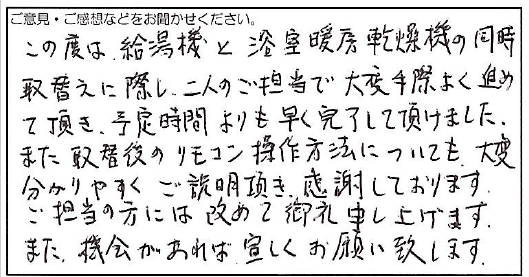 ご意見・ご感想などをお聞かせください。
この度は、給湯機と浴室暖房乾燥機の同時
取替えに際し、二人のご担当で大変手際よく進め
て頂き、予定時間よりも早く完了して頂けました。
また取替後のリモコン操作方法についても、大変
分かりやすくご説明頂き、感謝しております。
ご担当の方には改めて御礼申し上げます。
また、機会があれば、宜しくお願い致します。